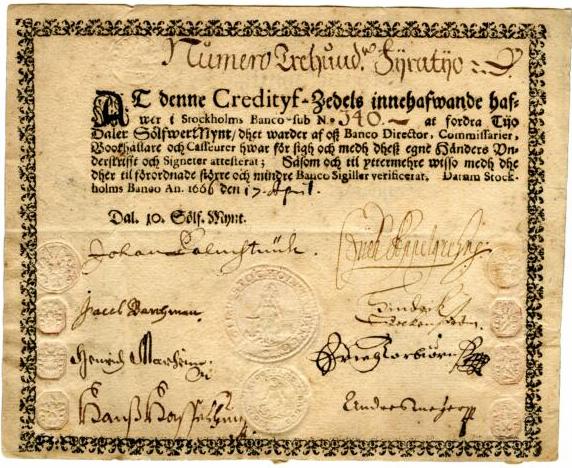 Numero Trehund. Fyratijo
AT denne Credityf-Zedels innehafwande haf-
wer i Stockholms Banco sub N.o 340.— at fordra Tijo
Daler SölfwerMynt/ dhet warder af oß Banco Director, Commissarier,
Bookhållare och Casseurer hwar för sigh och medh dheß egne Händers Un-
derskrifft och Signeter attesterat; Såsom och til yttermehre wisso medh dhe
dher til förordnade större och mindre Banco Sigiller verificerat, Datum Stock-
holms Banco An. 1666 den 17. April.
Dal. 10. Sölf. Mynt.
Johan Palmstruch.
Hans
Andres